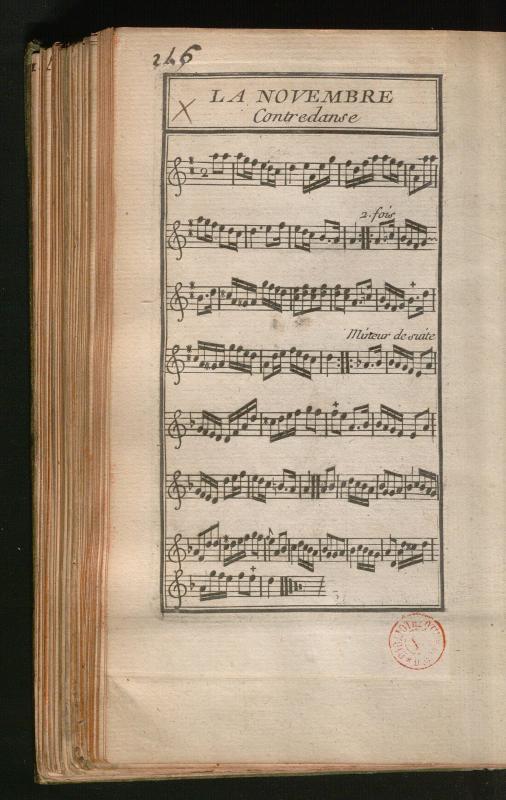 246
X
LA NOVEMBRE
Contredanse
2
2. fois
Mineur de suite